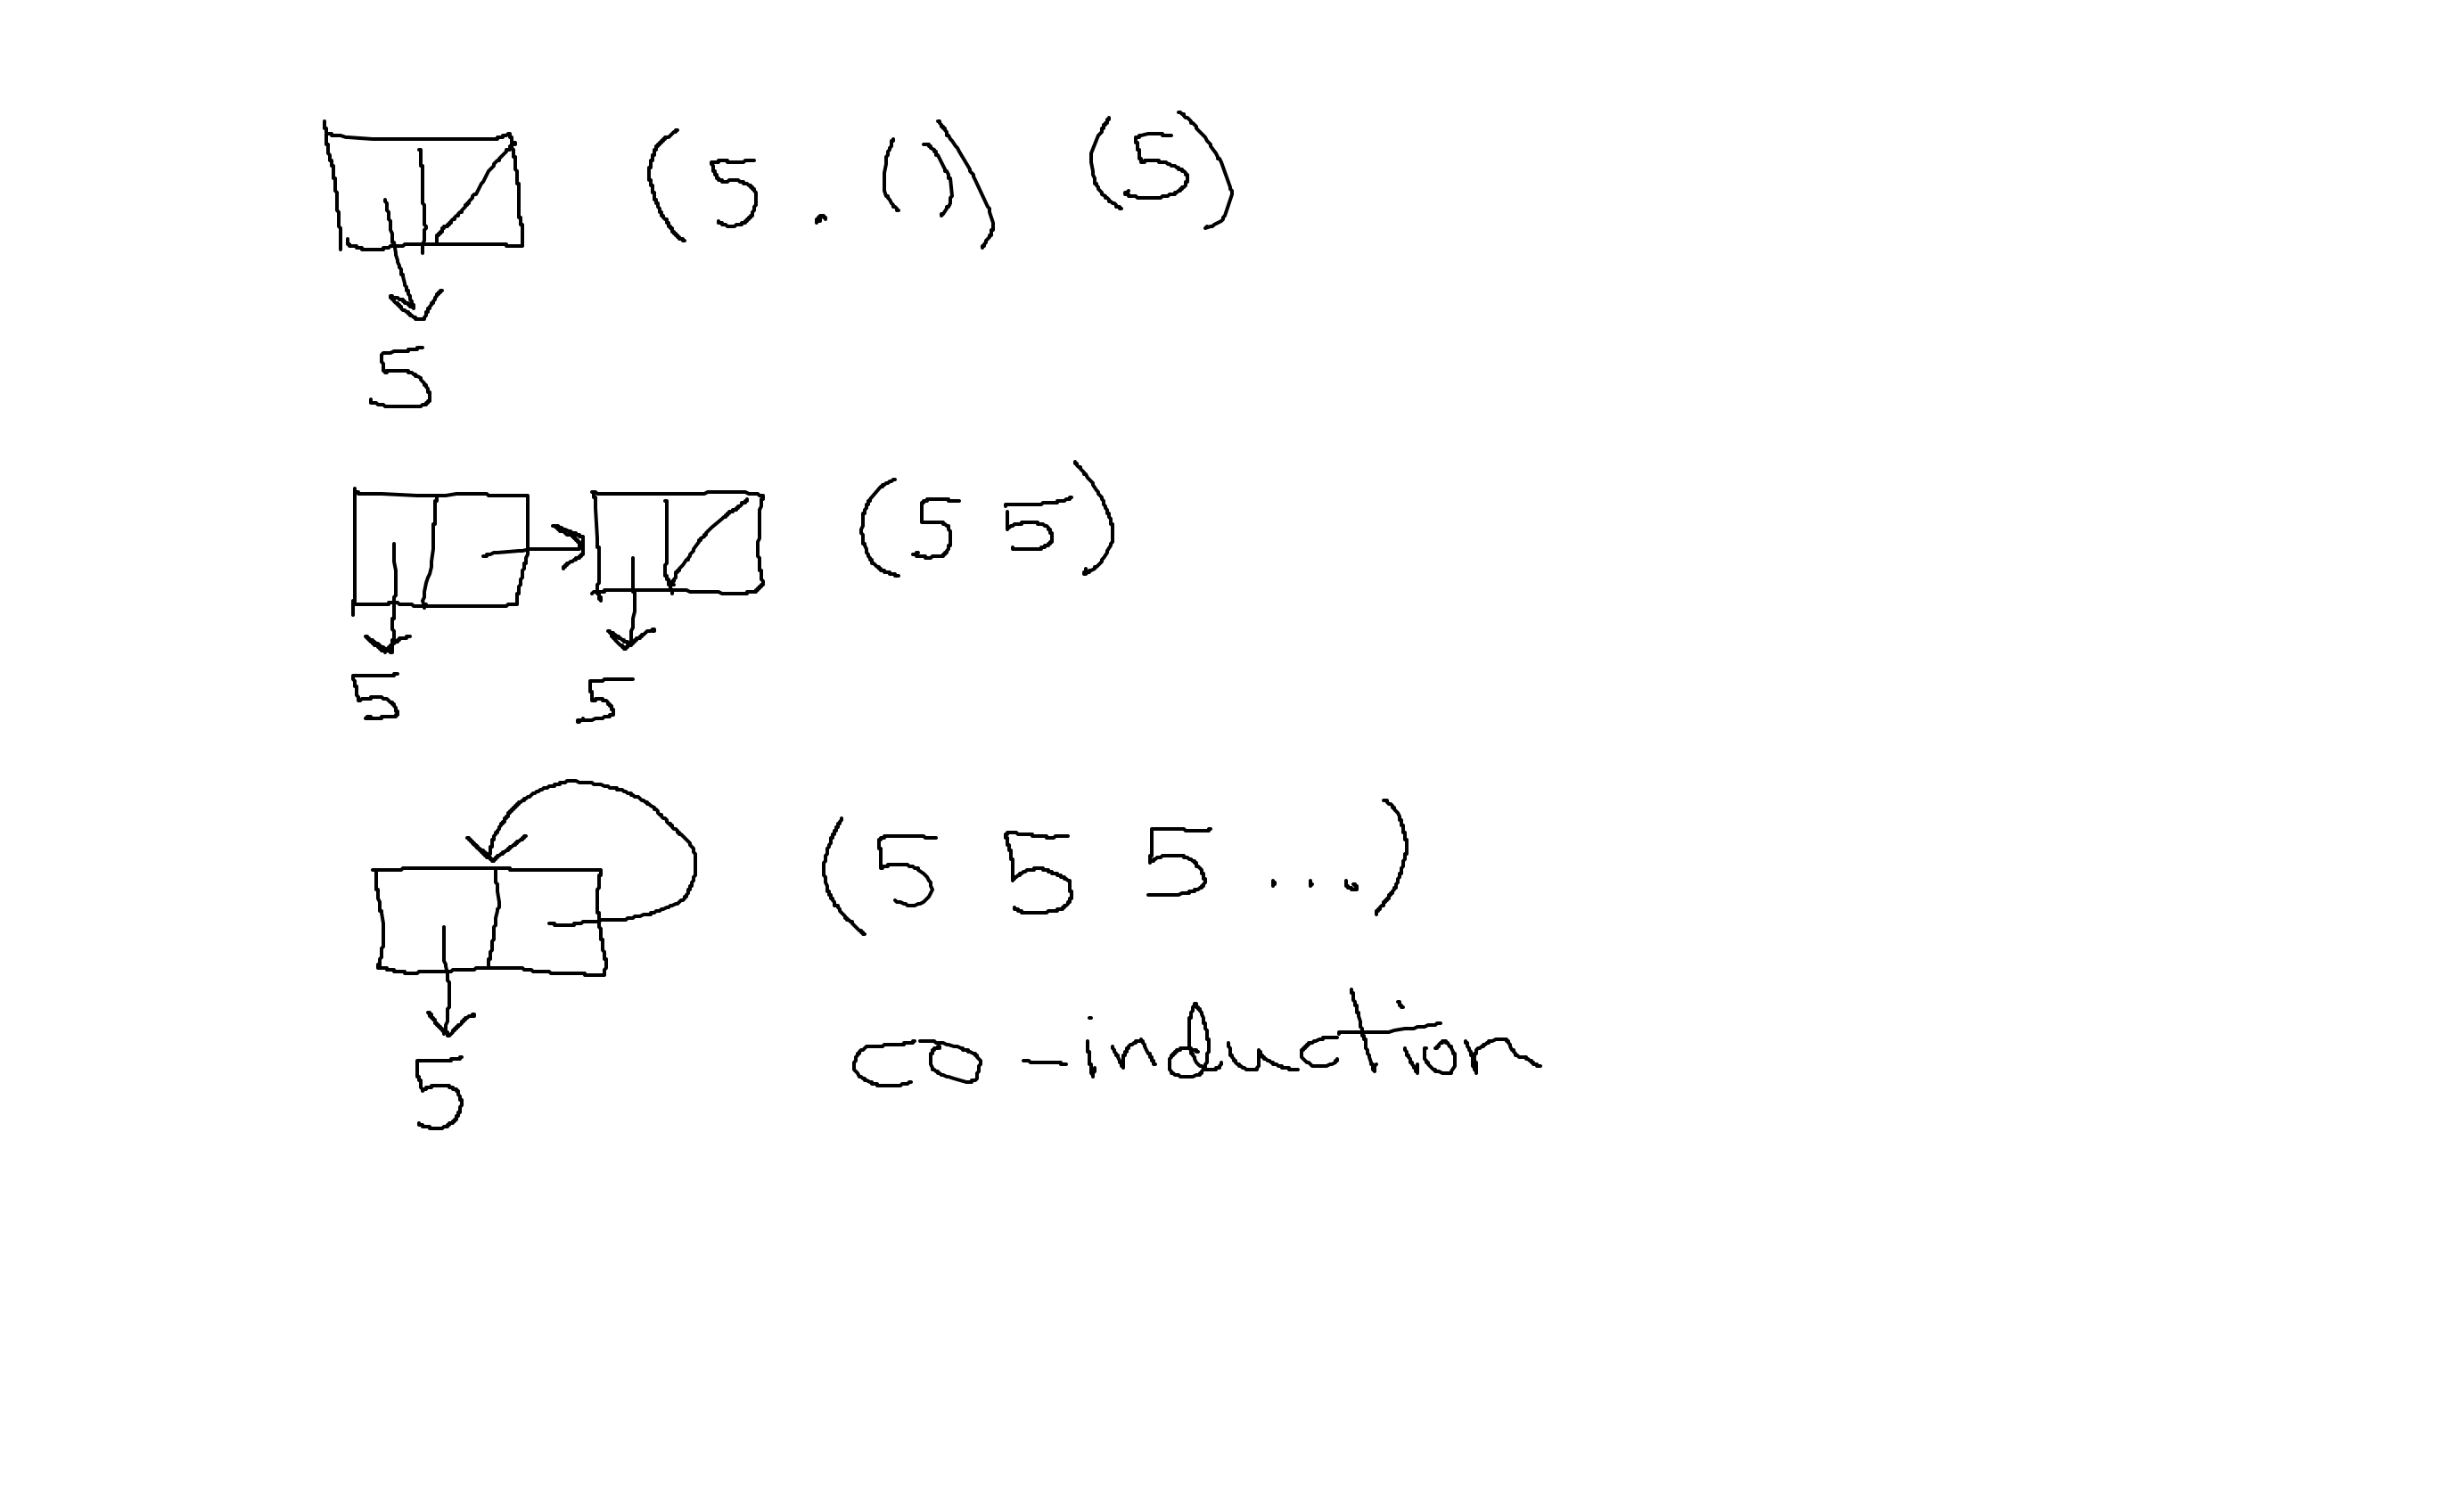 (5 . ()) (5)
5
(5 5)
5 5
(5 5 5 ...)
co-induction
5